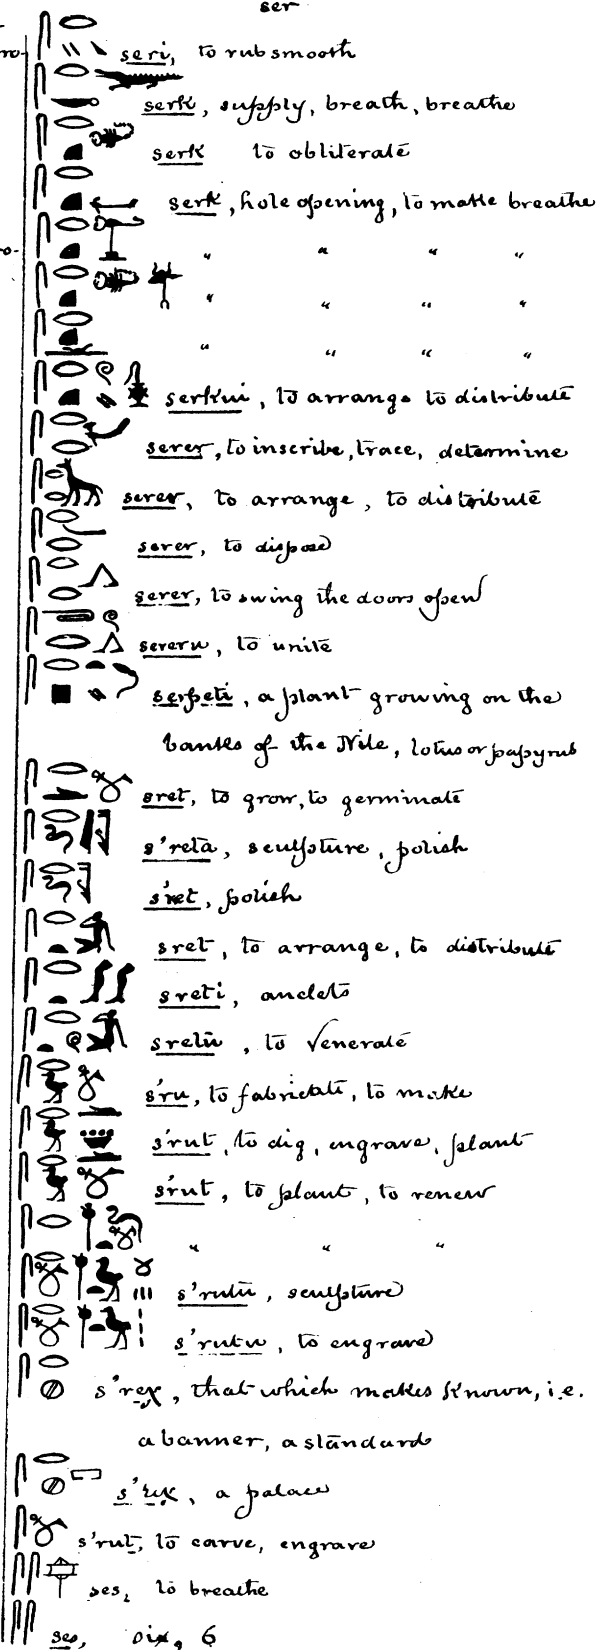 ser
seri, to rub smooth
serk, supply, breath, breathe
serk to obliterate
serk, hole opening, to make breathe
" " " "
" " " "
" " " "
serkui, to arrange to distribute
serer, to inscribe, trace, determine
serer, to arrange, to distribute
serer, to dispose
serer, to swing the doors open
sereru, to unite
serpeti, a plant growing on the
banks of the Nile, lotus or papyrus
sret, to grow, to germinate
s'reta, sculpture, polish
s'ret, polish
sret, to arrange, to distribute
sreti, anclets
sretu, to venerate
s'ru, to fabricate, to make
s'rut, to dig, engrave, plant
s'rut, to plant, to renew
" " "
s'rutu, sculpture
s'rutu, to engrave
s'reχ, that which makes known, i.e.
a banner, a standard
s'reχ, a palace
s'rut, to carve, engrave
ses, to breathe
ses, six, 6